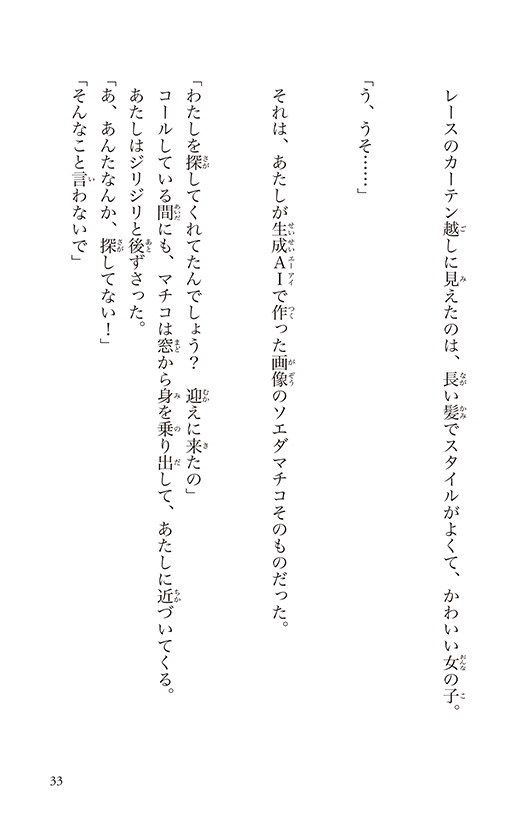 レースのカーテン越しに見えたのは、長い髪でスタイルがよくて、かわいい女の子。
「う、うそ……」
それは、あたしが生成AIで作った画像のソエダマチコそのものだった。
「わたしを探してくれてたんでしょう？　迎えに来たの」
コールしている間にも、マチコは窓から身を乗り出して、あたしに近づいてくる。
あたしはジリジリと後ずさった。
「あ、あんたなんか、探してない！」
「そんなこと言わないで」
33